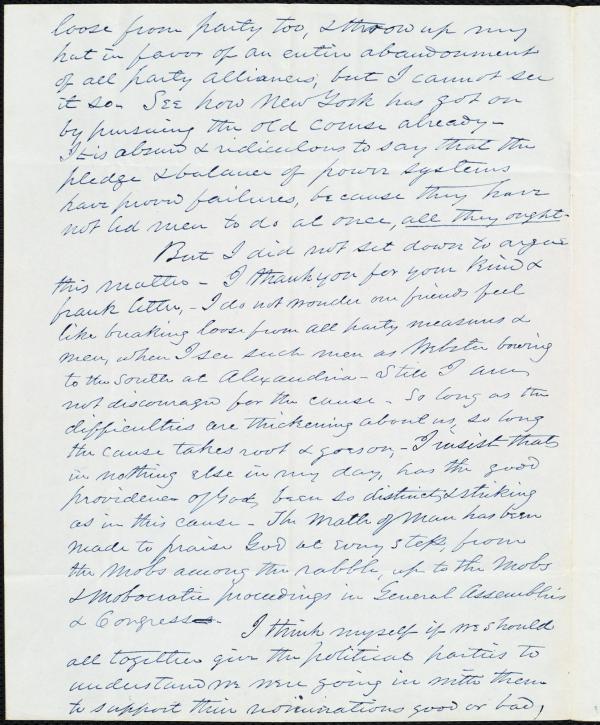 loose from party too, & throw up my
hat in favor of an entire abandonment
of all party alliances, but I cannot see
it so. See how New York has got on
by pursuing the old course already –
It is absurd & ridiculous to say that the
pledge & balance of power systems
have proved failures, because they have
not led men to do at once, all they ought.
But I did not set down to argue
this matter – I thank you for your kind &
frank letter, – I do not wonder our friends feel
like breaking loose from all party measures &
men, when I see such men as Webster bowing
to the South at Alexandria – Still I am
not discouraged for the cause – So long as the
difficulties are thickening about us, so long
the cause takes root & goes on, – I insist that
in nothing else in my day, has the good
providence of God, been so distinct & striking
as in this cause – The wrath of man has been
made to praise God at every step, from
the mobs among the rabble, up to the mobs
& mobocratic proceedings in General Assemblies
& Congress.
I think myself if we should
all together give the political parties to
understand we were going in with them
to support their nominations good or bad,